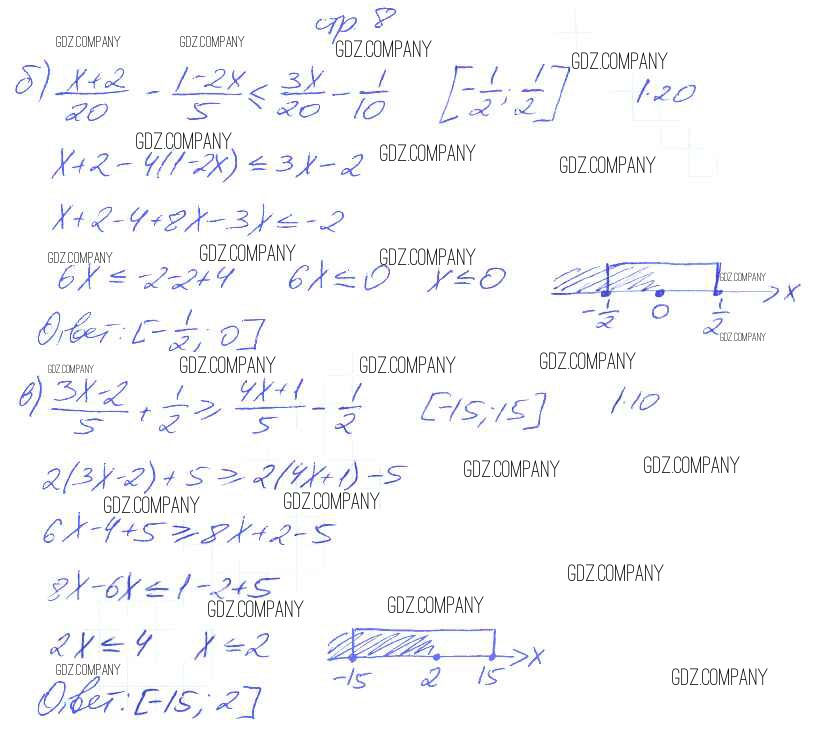 стр. 8
GDZ.COMPANY GDZ.COMPANY GDZ.COMPANY
GDZ.COMPANY
б) (x+2)/20 - (1-2x)/5 ≤ 3x/20 - 1/10 [-1/2; 1/2] |·20
GDZ.COMPANY GDZ.COMPANY GDZ.COMPANY
x+2-4(1-2x) ≤ 3x-2
x+2-4+8x-3x ≤ -2
GDZ.COMPANY GDZ.COMPANY GDZ.COMPANY
6x ≤ -2-2+4 6x ≤ 0 x ≤ 0
GDZ.COMPANY
-1/2 0 1/2 x
GDZ.COMPANY
Ответ: [-1/2; 0]
GDZ.COMPANY GDZ.COMPANY GDZ.COMPANY GDZ.COMPANY
в) (3x-2)/5 + 1/2 ≥ (4x+1)/5 - 1/2 [-15; 15] |·10
2(3x-2)+5 ≥ 2(4x+1)-5
GDZ.COMPANY GDZ.COMPANY
GDZ.COMPANY GDZ.COMPANY
6x-4+5 ≥ 8x+2-5
GDZ.COMPANY
8x-6x ≤ 1-2+5
GDZ.COMPANY GDZ.COMPANY
2x ≤ 4 x ≤ 2
-15 2 15 x
GDZ.COMPANY GDZ.COMPANY
Ответ: [-15; 2]